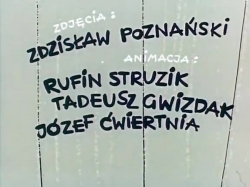 ZDJĘCIA:
ZDZISŁAW POZNAŃSKI
ANIMACJA:
RUFIN STRUZIK
TADEUSZ GWIZDAK
JÓZEF ĆWIERTNIA